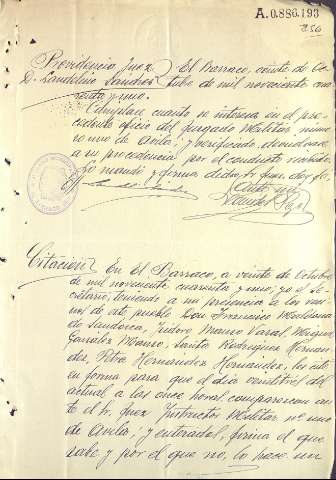 A.0.886.193
Providencia Juez El Barraco, veinte de Oc-
D. Landelino Sánchez tubre de mil novecientos cua-
renta y uno.
Cúmplase cuanto se interesa en el pre-
cedente oficio del Juzgado Militar núme-
ro uno de Avila, y verificado, devuélvase
a su procedencia por el conducto recibido.
Lo mandó y firma dicho Sr. Juez doy fe.
Ante mi
Citación En El Barraco, a veinte de Octubre
de mil novecientos cuarenta y uno; yo el Se-
cretario, teniendo a mi presencia a los veci-
nos de este pueblo Don Francisco
Isidoro Manso Varas, Miguel
González Manso, Santos Rodríguez Hernan-
dez, Petra Hernández Hernández, les cité
en forma para que el día veintitrés del
actual a las once horas comparezcan an-
te el Sr. Juez Instructor Militar nº uno
de Avila; y enterados, firma el que
sabe y por el que no, lo hace un